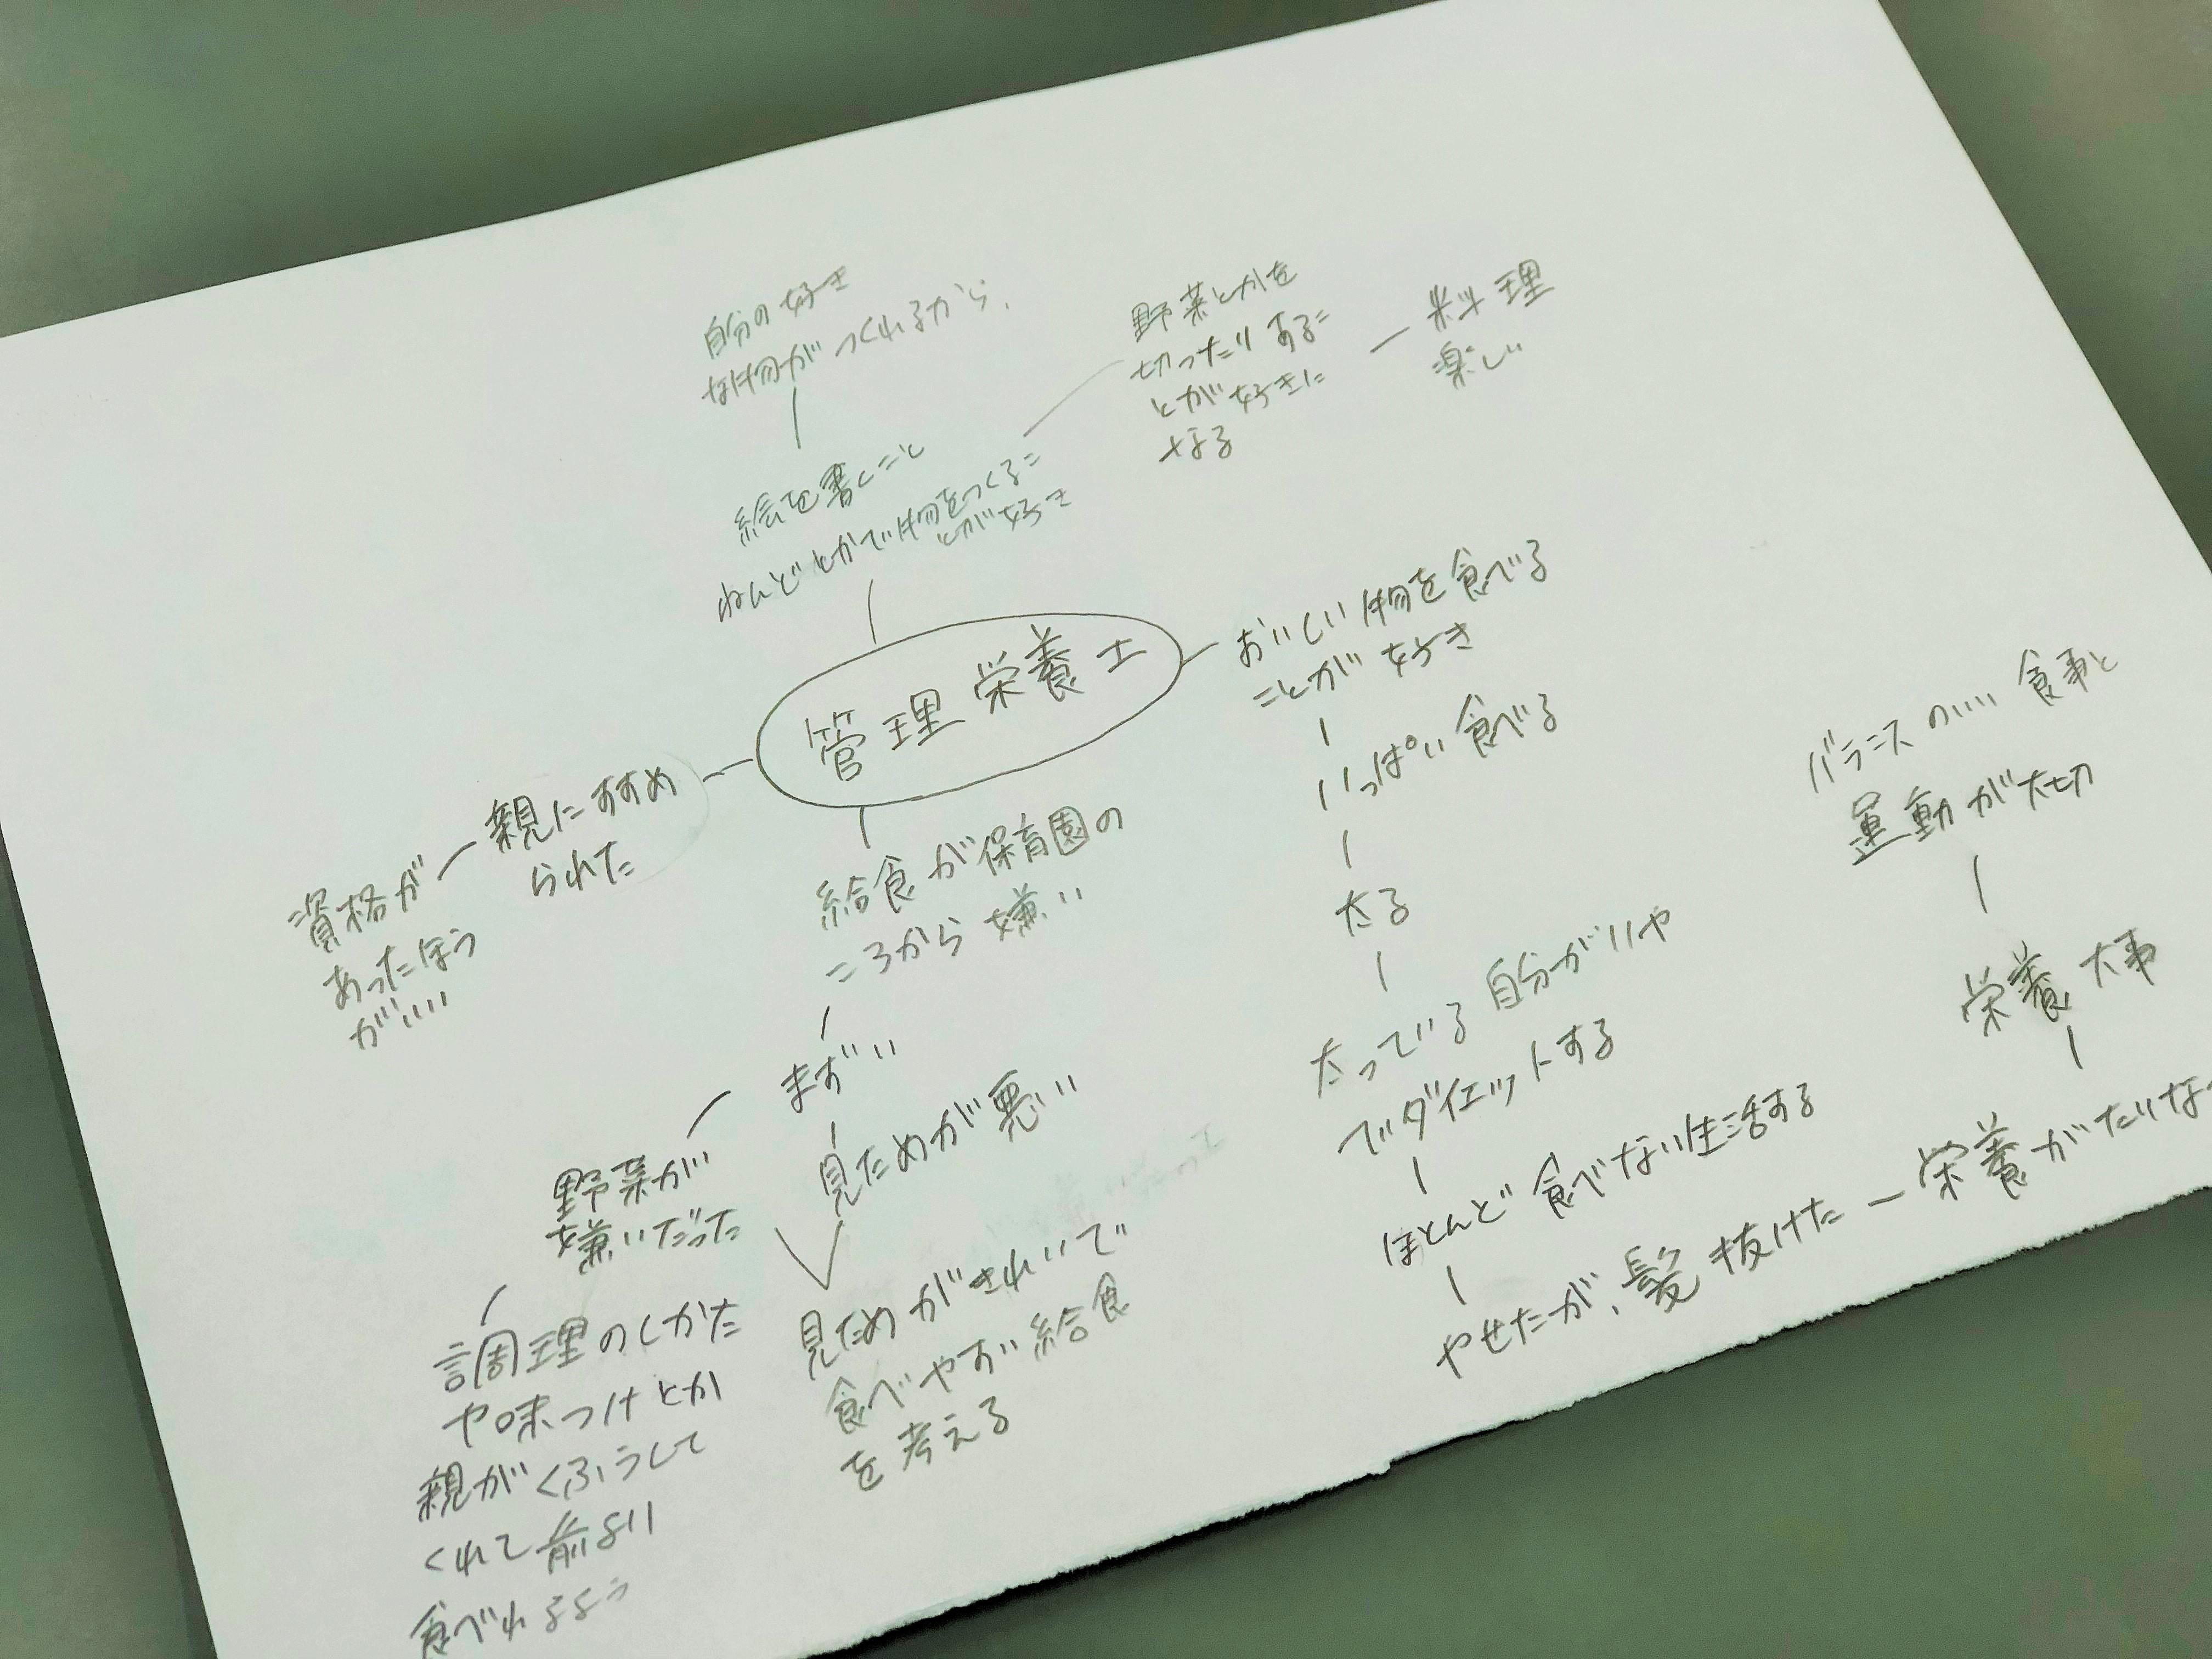 自分の好き
な物がつくれるから、
野菜とかを
切ったりするこ
とが好きに
なる
料理
楽しい
絵を書くこと
ねんどとかで物をつくるこ
とが好き
管理栄養士
おいしい物を食べる
ことが好き
いっぱい食べる
太る
太っている自分がいや
でダイエットする
ほとんど食べない生活する
やせたが、髪抜けた
栄養がたりな
栄養大事
バランスのいい食事と
運動が大切
親にすすめ
られた
資格が
あったほう
がいい
給食が保育園の
ころから嫌い
まずい
見ためが悪い
見ためがきれいで
食べやすい給食
を考える
野菜が
嫌いだった
調理のしかた
や味つけとか
親がくふうして
くれて前より
食べれるよう